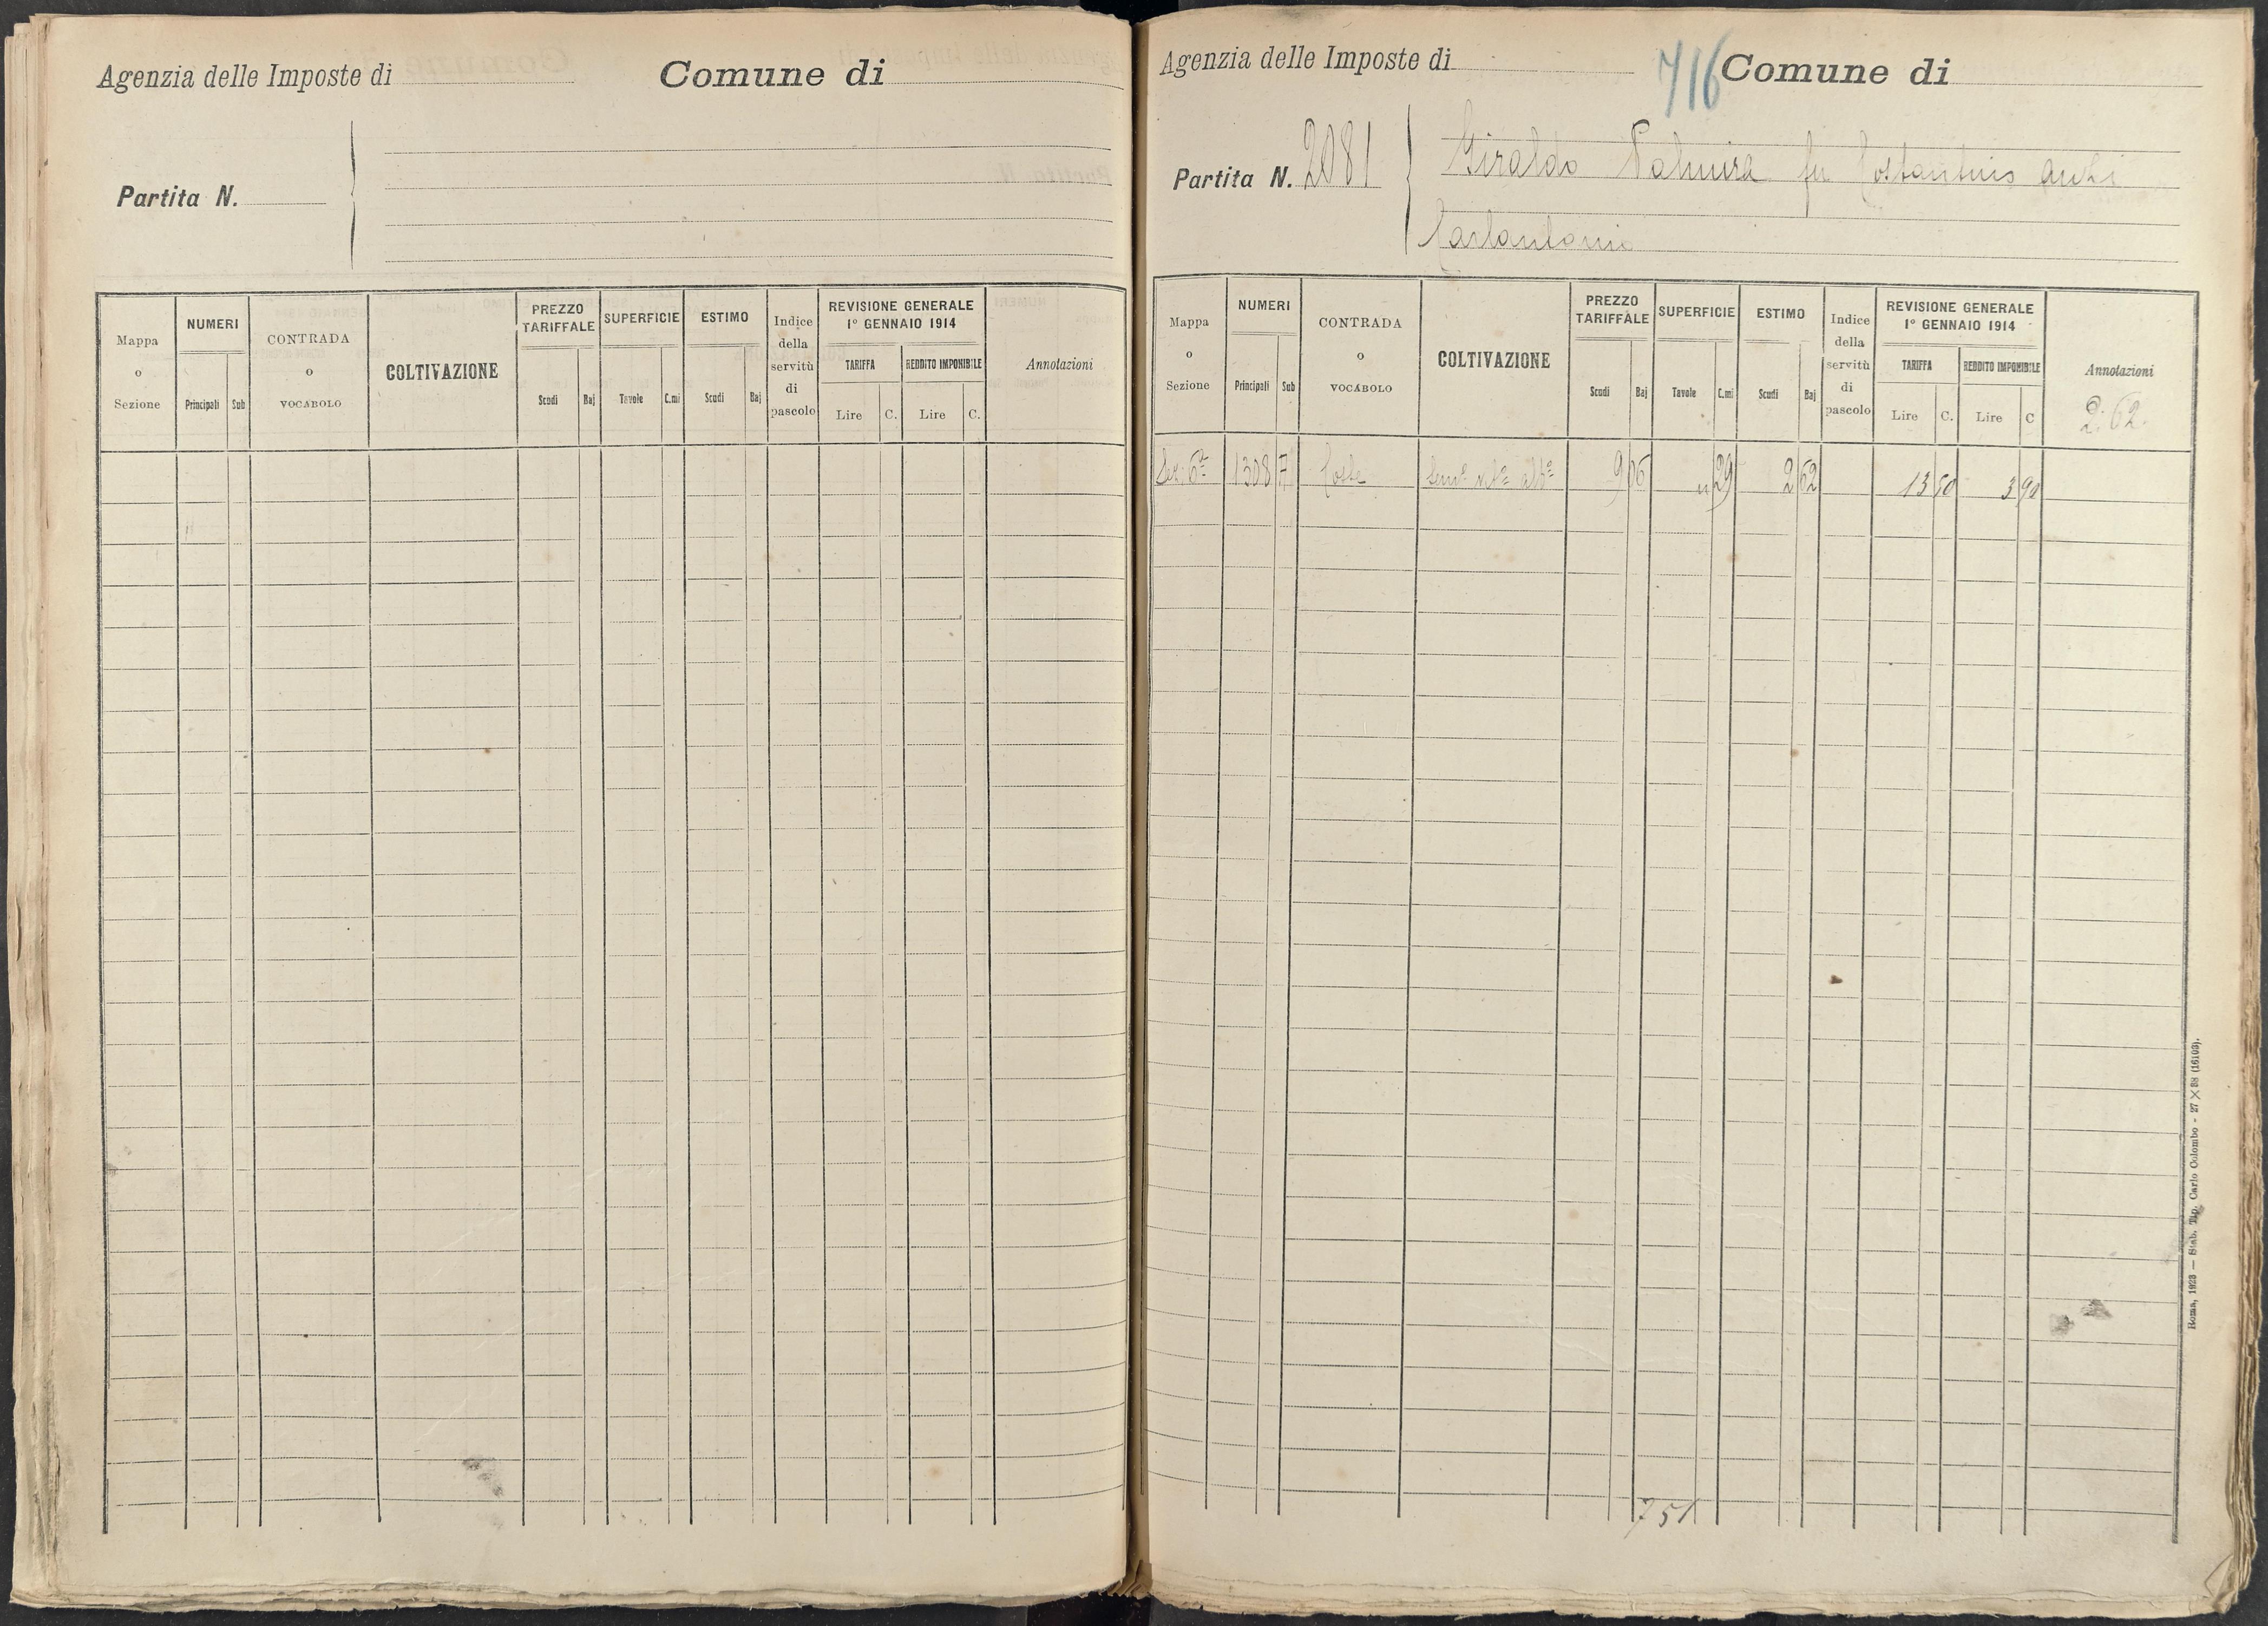 Agenzia delle Imposte di
Comune di
Partita N.
Mappa o Sezione
NUMERI
Principali
Sub
CONTRADA o VOCABOLO
COLTIVAZIONE
PREZZO TARIFFALE
Scudi
Baj
SUPERFICIE
Tavole
C.mi
ESTIMO
Scudi
Baj
Indice della servitù di pascolo
REVISIONE GENERALE
1° GENNAIO 1914
TARIFFA
Lire
C.
REDDITO IMPONIBILE
Lire
C.
Annotazioni
Agenzia delle Imposte di
716
Comune di
Partita N. 2081
Giraldo Palmira fu Costantino
Carlantonio
Mappa o Sezione
NUMERI
Principali
Sub
CONTRADA o VOCABOLO
COLTIVAZIONE
PREZZO TARIFFALE
Scudi
Baj
SUPERFICIE
Tavole
C.mi
ESTIMO
Scudi
Baj
Indice della servitù di pascolo
REVISIONE GENERALE
1° GENNAIO 1914
TARIFFA
Lire
C.
REDDITO IMPONIBILE
Lire
C
Annotazioni
2.62.
Sez. 6ª 1308 Coste Semo vito albo 9 06 " 29 2 62 13 50 3 90
751
Roma, 1923 — Stab. Tip. Carlo Colombo - 27 × 38 (16103).